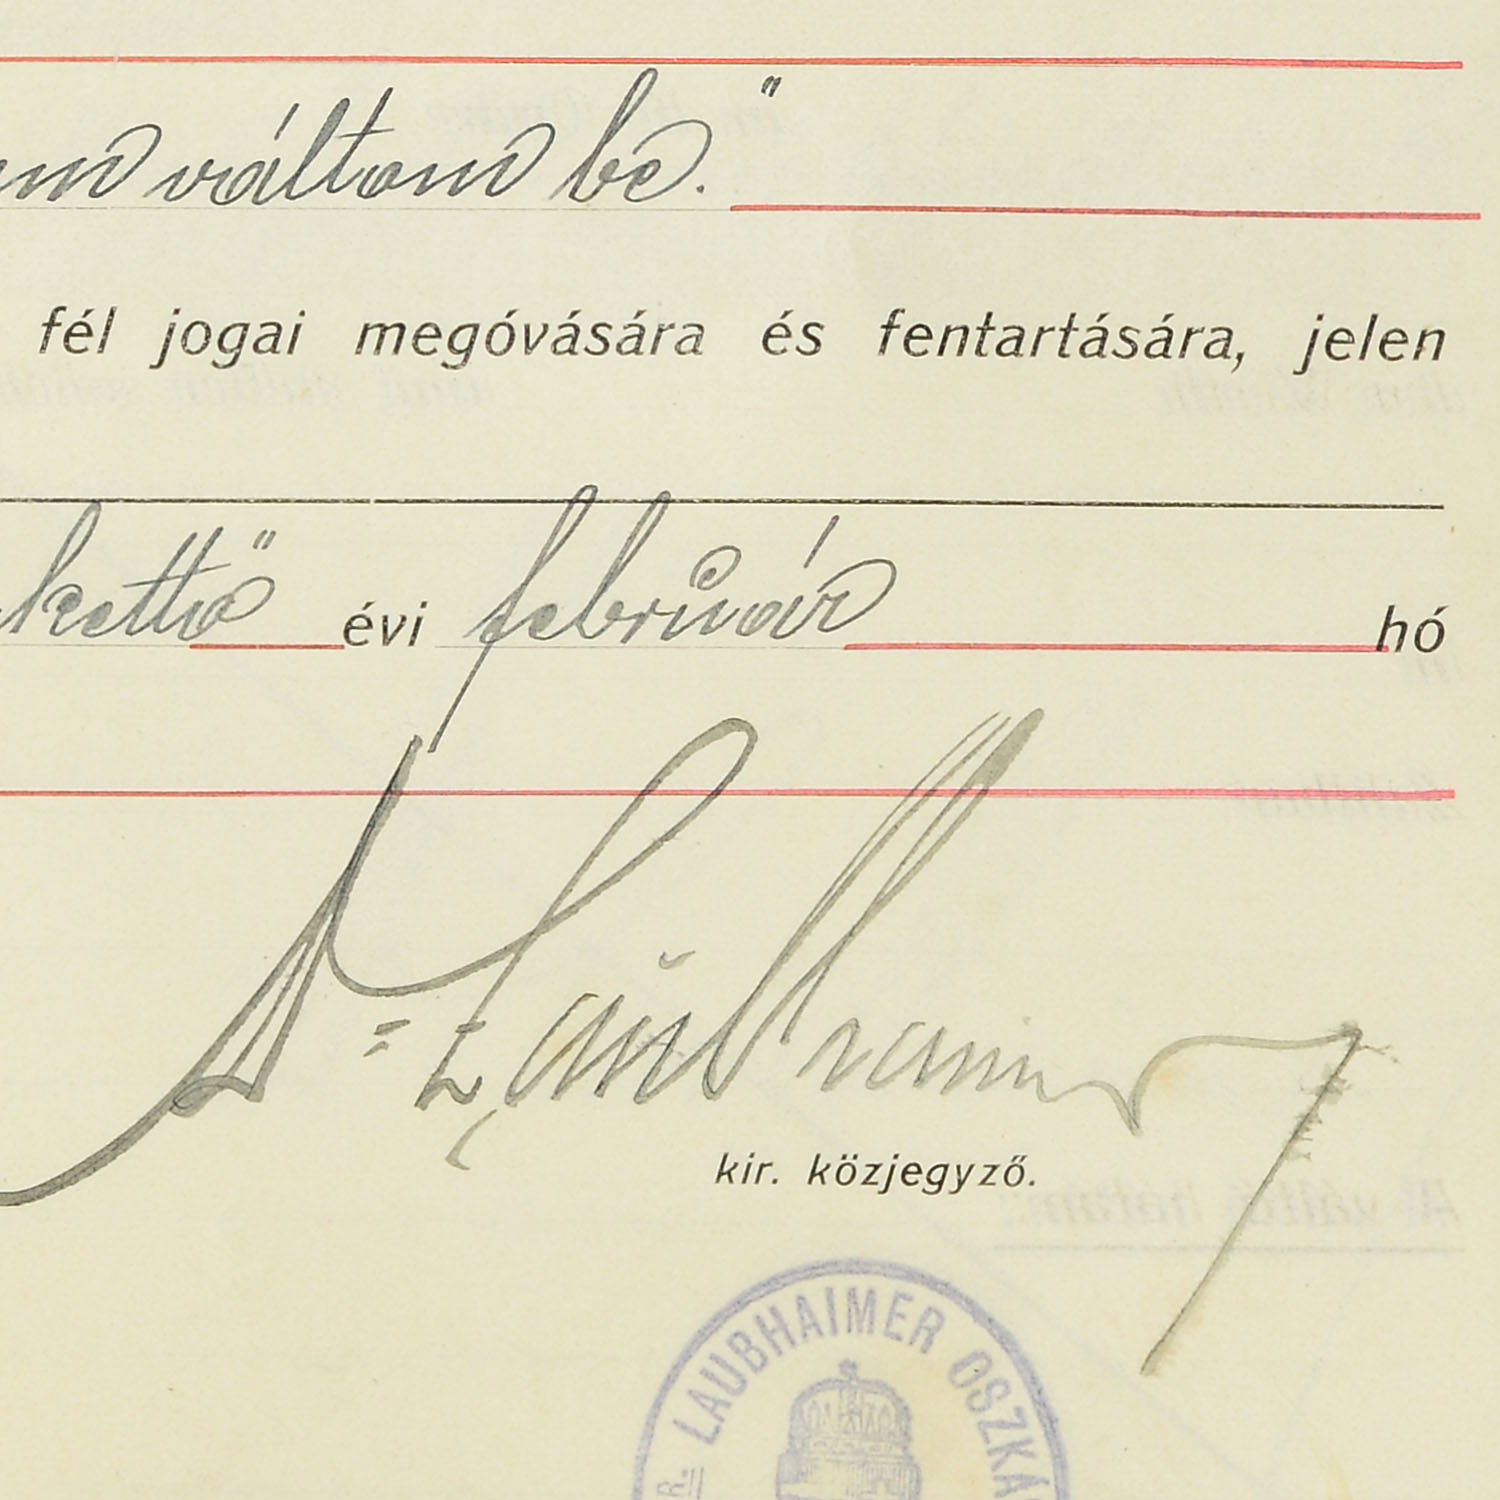 váltom be."
fél jogai megóvására és fentartására, jelen
kettő évi február hó
Dr Laubhaimer
kir. közjegyző.
DR. LAUBHAIMER OSZKÁ